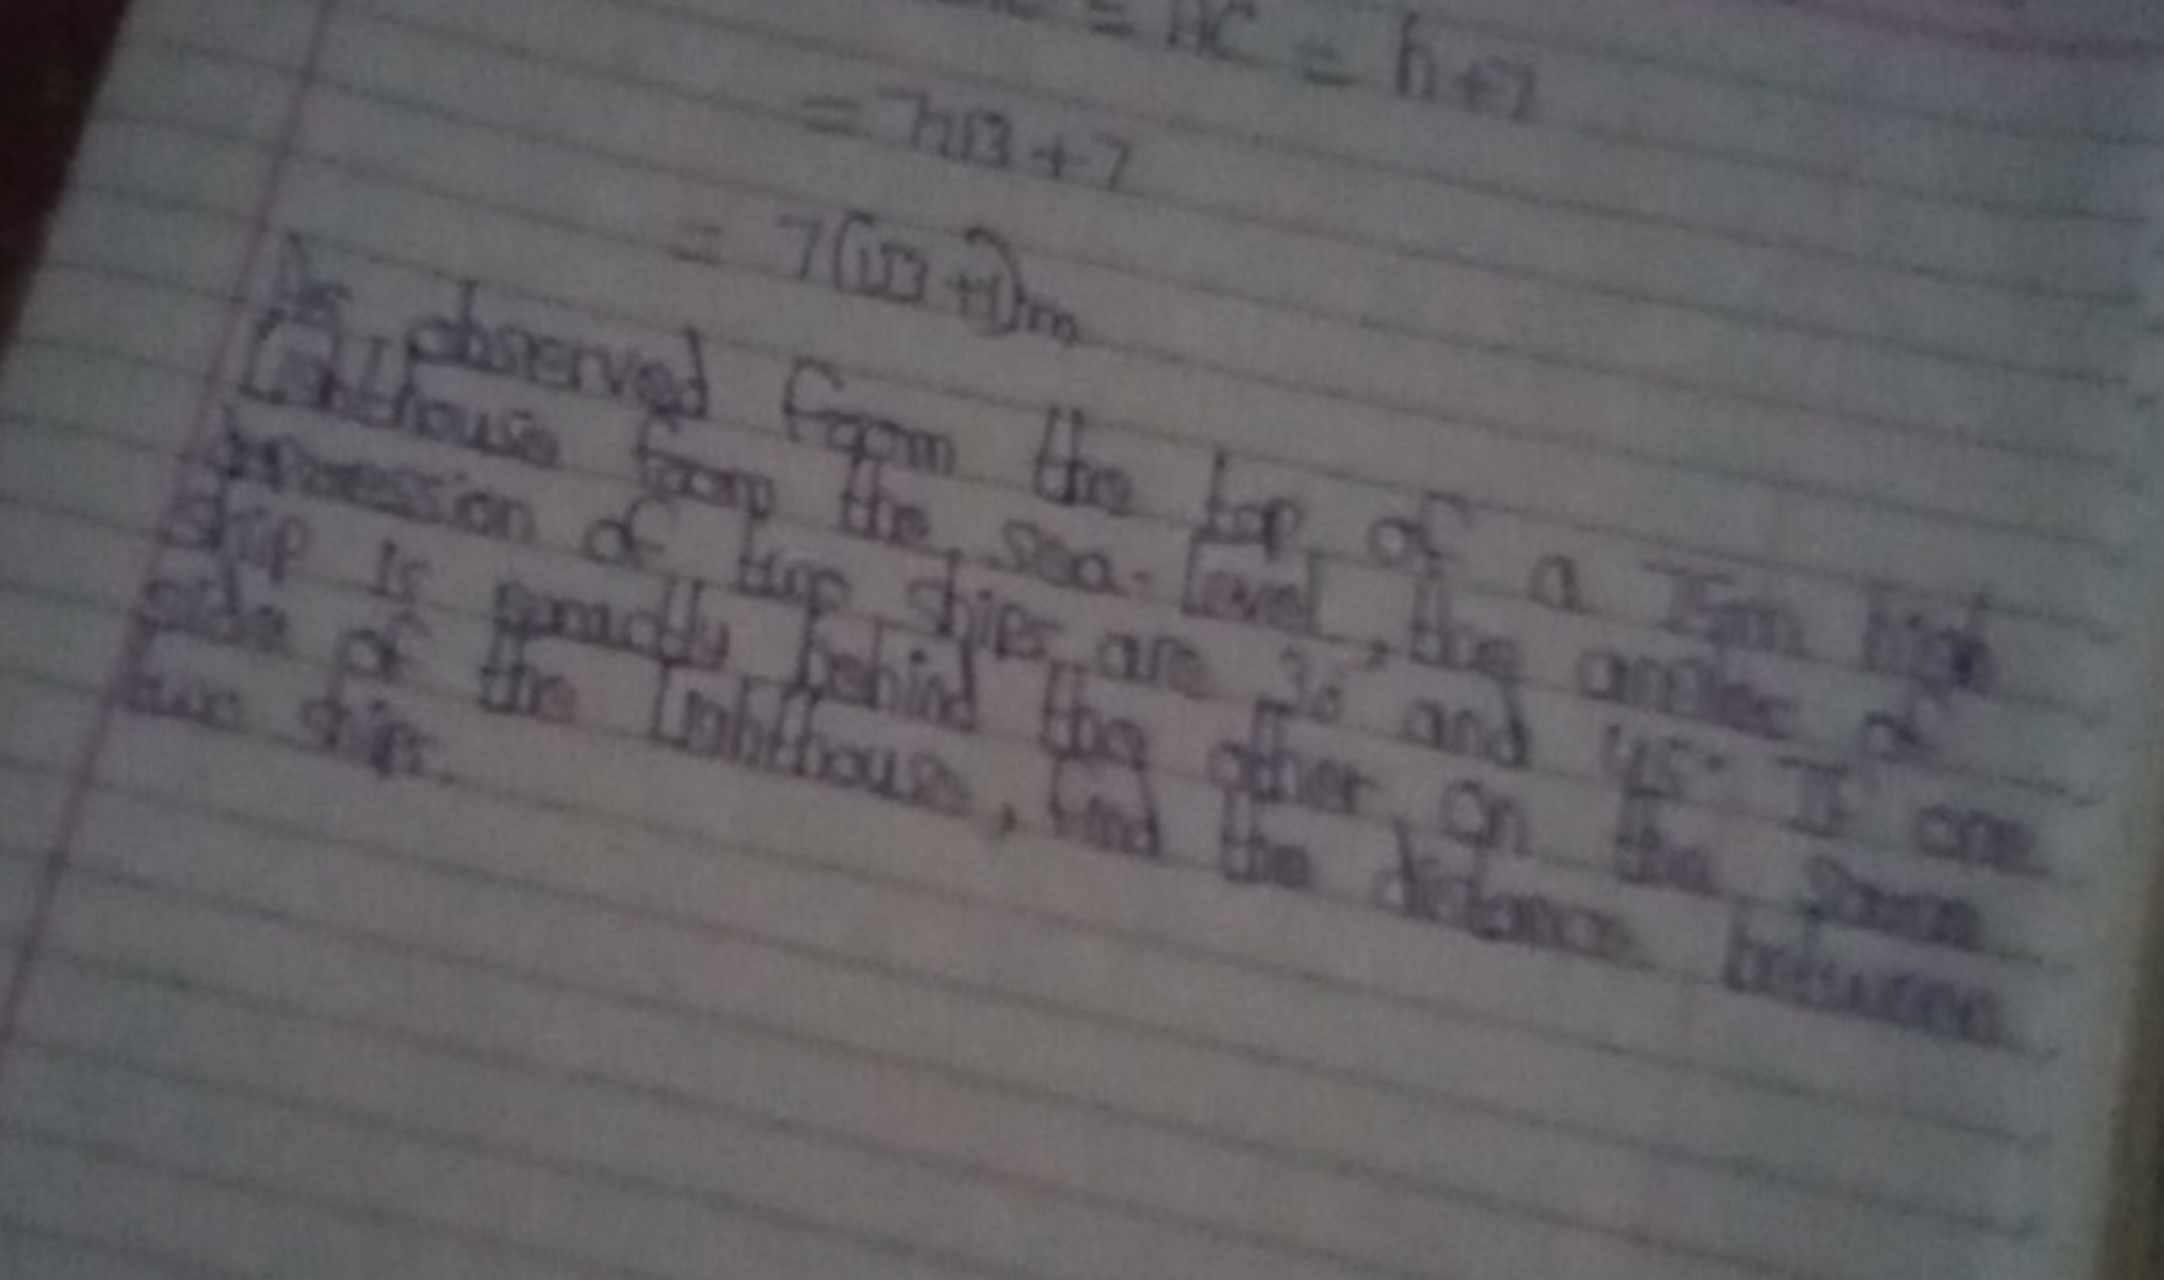 = AC = h+7
= 7√3 + 7
= 7(√3 +1)m
As observed from the top of a 75m high
Lighthouse from the sea-level, the angles of
depression of two ships are 30° and 45° If one
ship is exactly behind the other on the same
side of the Lighthouse, find the distance between
two ships.